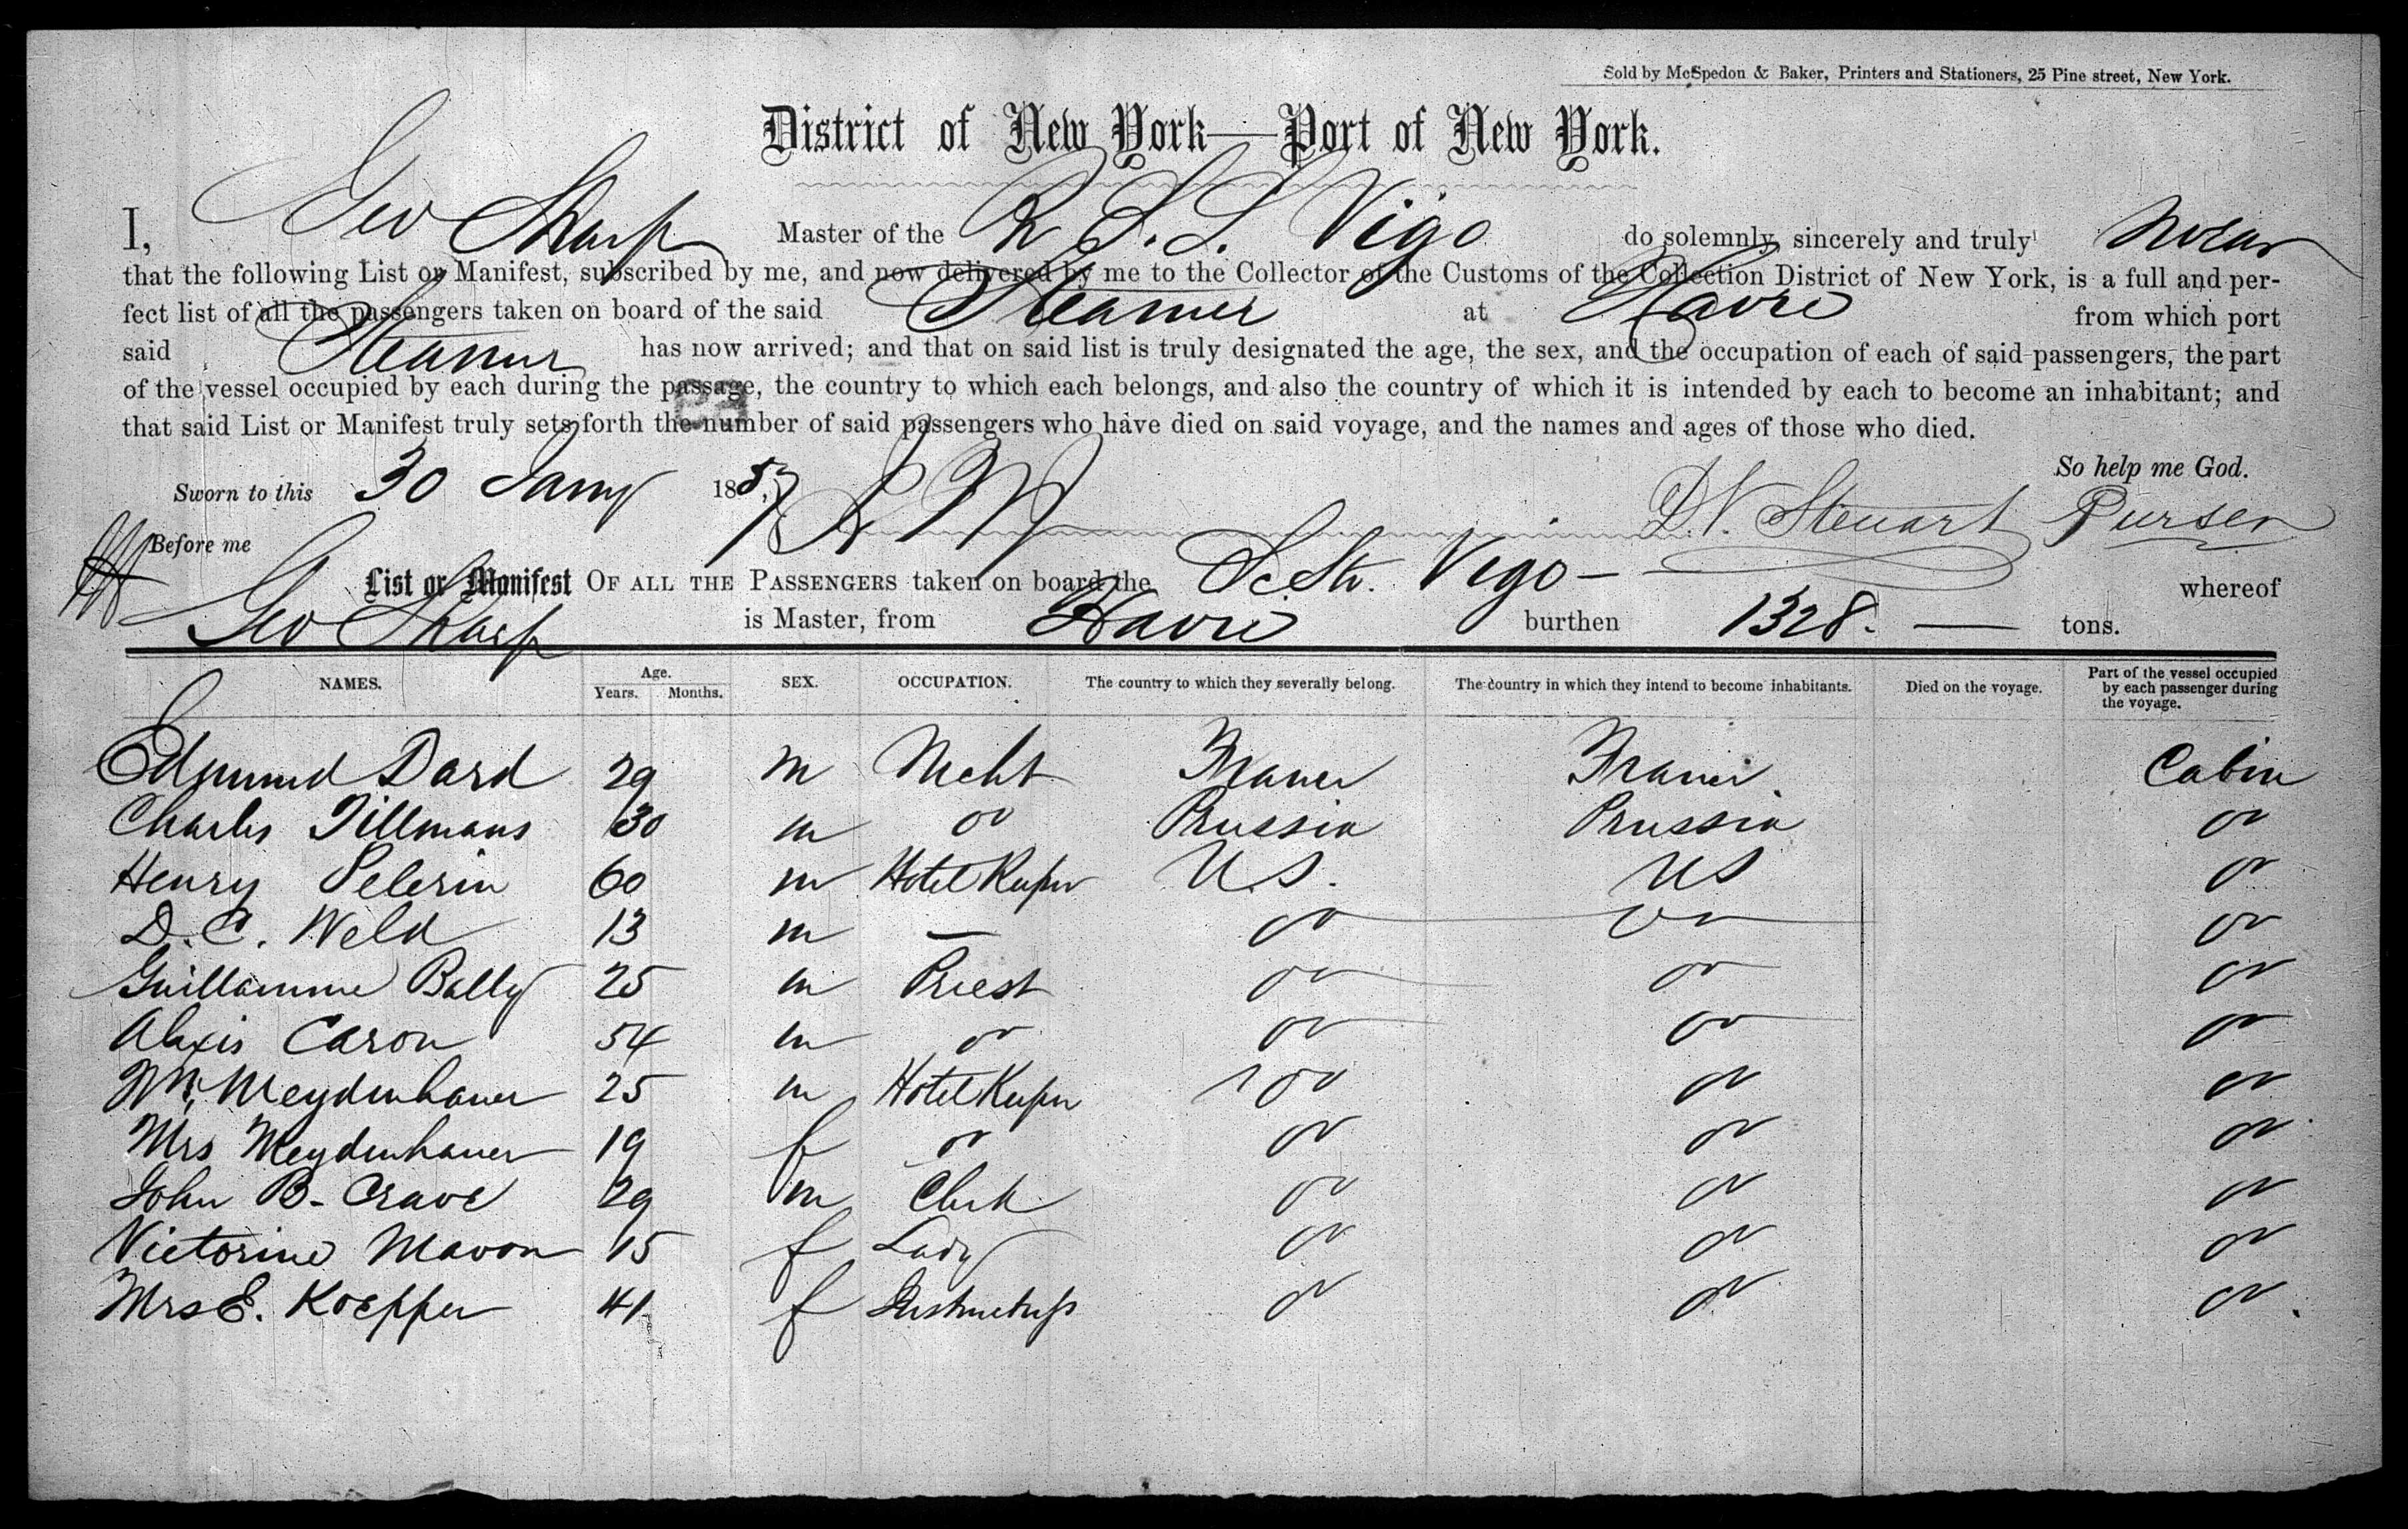 Sold by McSpedon & Baker, Printers and Stationers, 25 Pine street, New York.
District of New York—Port of New York.
I, Geo Sharp Master of the R S.S. Vigo do solemnly, sincerely and truly swear
that the following List or Manifest, subscribed by me, and now delivered by me to the Collector of the Customs of the Collection District of New York, is a full and per-
fect list of all the passengers taken on board of the said Steamer at Havre from which port
said Steamer has now arrived; and that on said list is truly designated the age, the sex, and the occupation of each of said passengers, the part
of the vessel occupied by each during the passage, the country to which each belongs, and also the country of which it is intended by each to become an inhabitant; and
that said List or Manifest truly sets forth the number of said passengers who have died on said voyage, and the names and ages of those who died.
So help me God.
Sworn to this 30 Jany 1857 Steuart Purser
Before me
List or Manifest OF ALL THE PASSENGERS taken on board the Sc. Str. Vigo — whereof
Geo Sharp is Master, from Havre burthen 1328. — tons.
NAMES. Age. Years. Months. SEX. OCCUPATION. The country to which they severally belong. The country in which they intend to become inhabitants. Died on the voyage. Part of the vessel occupied by each passenger during the voyage.
Edmund Dard 29 m Mcht France France Cabin
Charles Tillmans 30 m do Prussia Prussia do
Henry Pelerin 60 m Hotel Keeper U.S. US do
D. C. Weld 13 m — do do do
Guillamme Bally 25 m Priest do do do
Alexis Caron 54 m do do do do
Wm Meydenhauer 25 m Hotel Keeper do do do
Mrs Meydenhauer 19 f do do do do
John B. Crave 29 m Clerk do do do
Victorine Mavon 15 f Lady do do do
Mrs E. Koepper 41 f Instructress do do do